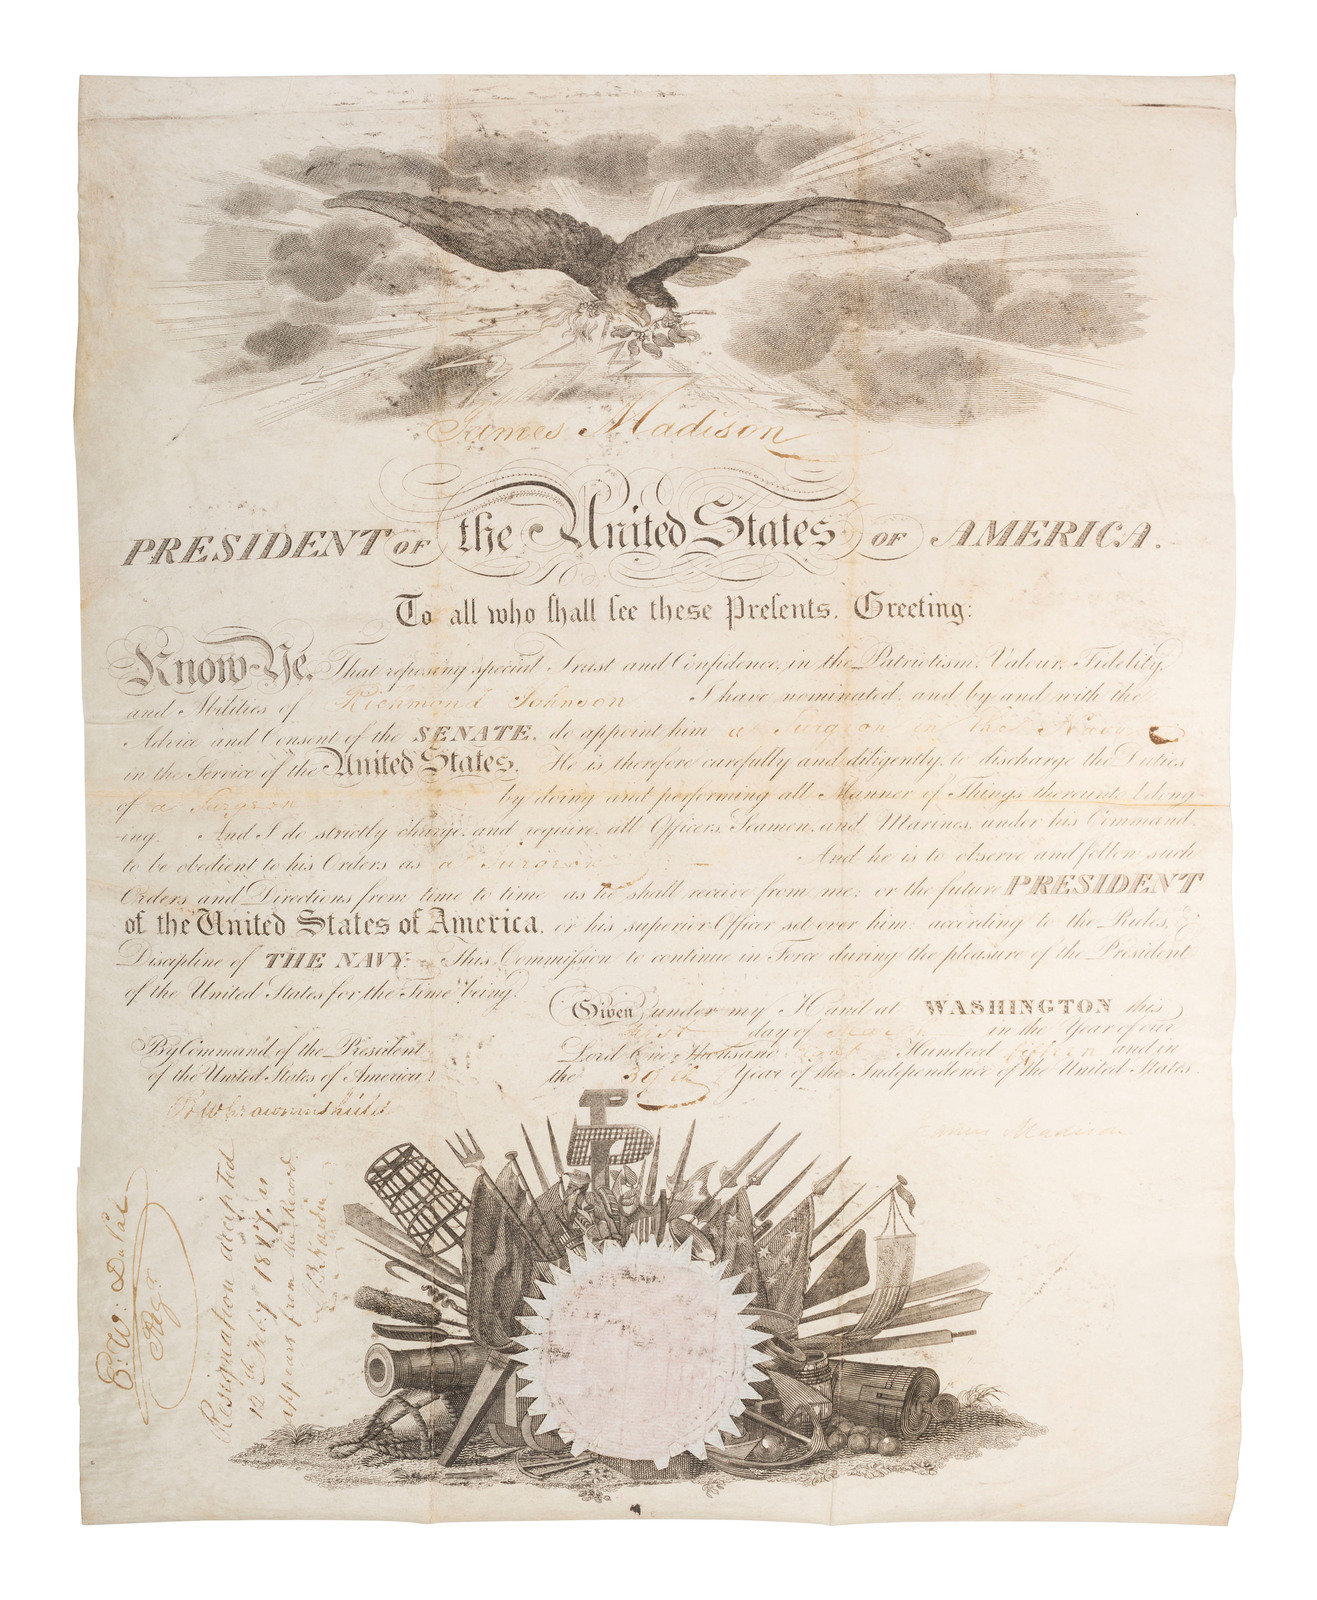 James Madison
PRESIDENT OF the United States OF AMERICA.
To all who ſhall ſee theſe Preſents, Greeting:
Know Ye, That reposing special Trust and Confidence in the Patriotism, Valour, Fidelity,
and Abilities of Richmond Johnson I have nominated, and by and with the
Advice and Consent of the SENATE, do appoint him a Surgeon in the Navy
in the Service of the United States. He is therefore carefully and diligently to discharge the Duties
of a Surgeon by doing and performing all Manner of Things thereunto belong-
ing. And I do strictly charge, and require all Officers, Seamen, and Marines, under his Command
to be obedient to his Orders as a Surgeon And he is to observe and follow such
Orders and Directions from time to time as he shall receive from me; or the future PRESIDENT
of the United States of America, or his superior Officer set over him; according to the Rules, &
Discipline of THE NAVY. This Commiſsion to continue in Force during the pleasure of the President
of the United States for the Time being.
Given under my Hand at WASHINGTON this
first day of March in the Year of our
Lord One Thousand Eight Hundred fifteen and in
the 39th Year of the Independence of the United States.
By Command of the President
of the United States of America
B W Crowninshield
James Madison
Resignation accepted
12th July 1827, as
appears from the Record.